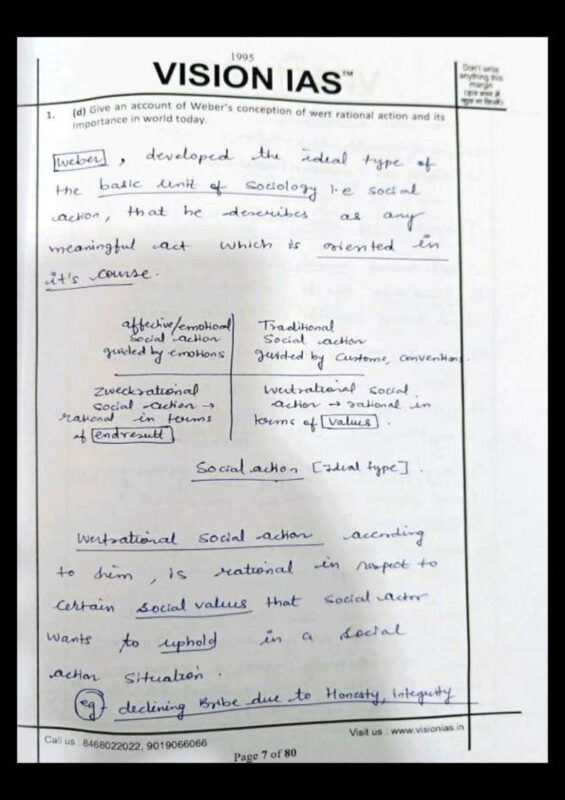 1995
VISION IAS™
Don't write
anything this
margin
1. (d) Give an account of Weber's conception of wert rational action and its
importance in world today.
Weber, developed the ideal type of
the basic unit of Sociology i.e social
action, that he describes as any
meaningful act which is oriented in
it's course.
affective/emotional
Social action
guided by emotions
Traditional
Social action
guided by customs, conventions.
Zweckrational
social action →
rational in terms
of endresult
Wertrational social
action → rational in
terms of values.
Social action [Ideal type].
Wertrational social action according
to him, is rational in respect to
certain social values that social actor
wants to uphold in a social
action situation.
eg- declining Bribe due to Honesty, integrity
Call us : 8468022022, 9019066066
Visit us : www.visionias.in
Page 7 of 80